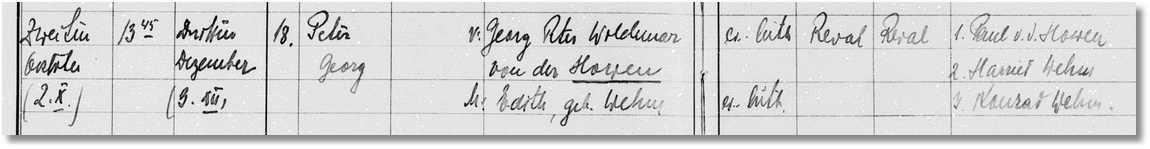 Zweiten 13 45 Dritten 18. Peter v. Georg Ptr. Woldemar ev. luth. Reval Reval 1. Paul v. d. Howen
Oktober Dezember Georg von der Howen 2. Harried Wehm
(2. X.) (3. XII.) M. Edith, geb. Wehm ev. luth. 3. Konrad Wehm.